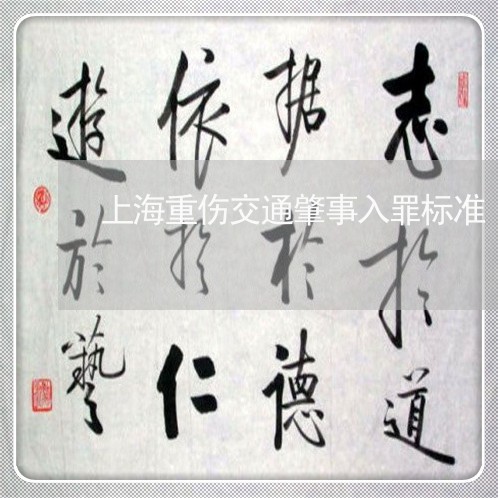 志於道
据於德
依於仁
遊於藝
上海重伤交通肇事入罪标准